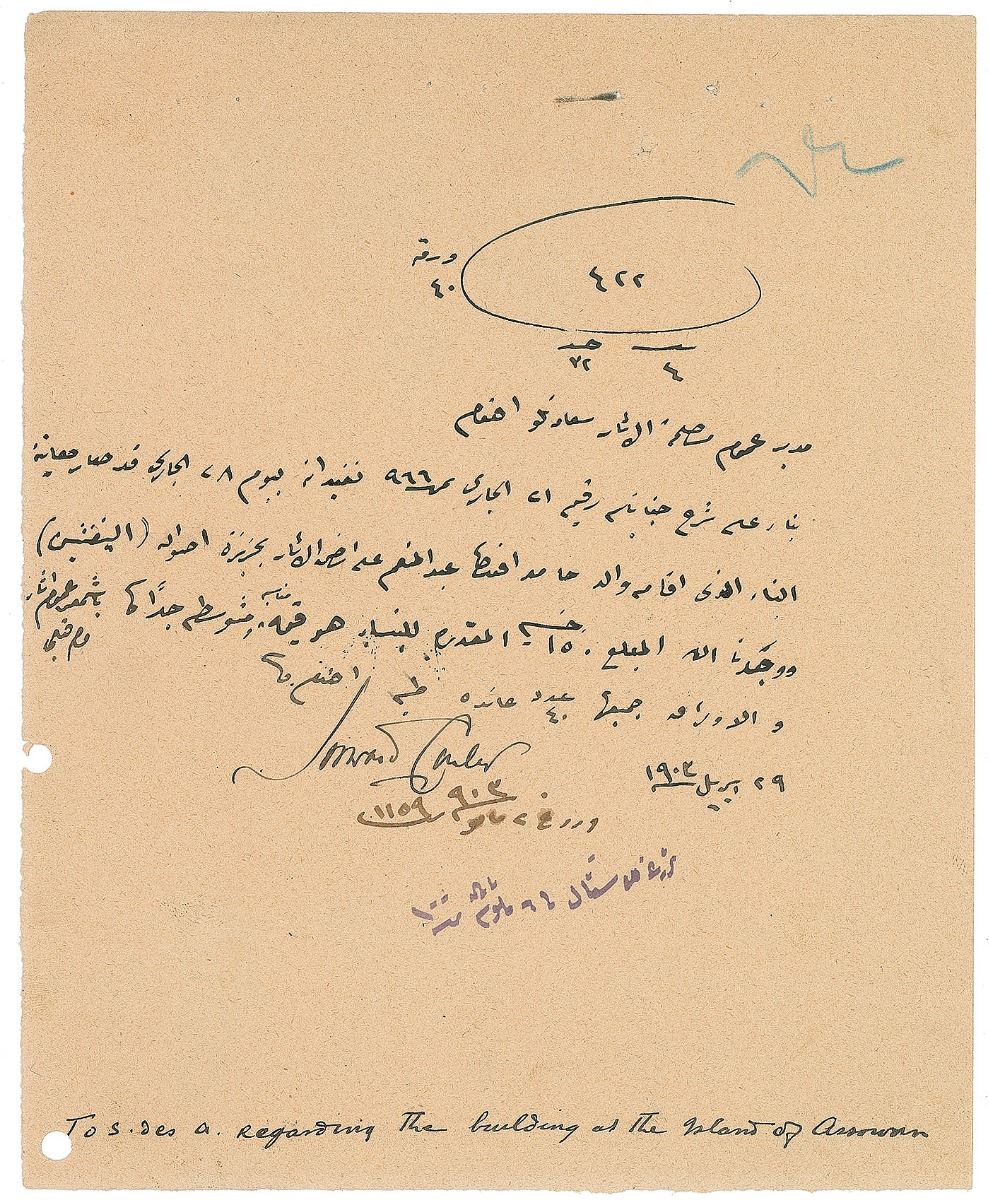 ورقة
٤٠
٤٢٢
٤ ٣٢
مدير عموم مصلحة الاثار سعادتلو افندم
بناء على شرح جنابكم رقيم ٢١ الجاري نمرة ٩٦٦ نفيد انه بيوم ٢٨ الجاري قد صار معاينة
البناء الذى اقامه والد حامد افندى عبد المنعم على ارض الاثار بجزيرة اصوان (اليفنتين)
ووجدنا ان المبلغ ١٥٠ المقدره للبناء هو قيمة متوسطه جدًا
والاوراق جميعها عدد ٤٠ عائده طيه افندم
مفتش عموم اثار
وجه قبلي
Howard Carter
٢٩ ابريل ١٩٠٣
ورد في ٢ مايو ٩٠٣ ١١٥٩
To S. des A. regarding the building at the Island of Assowan